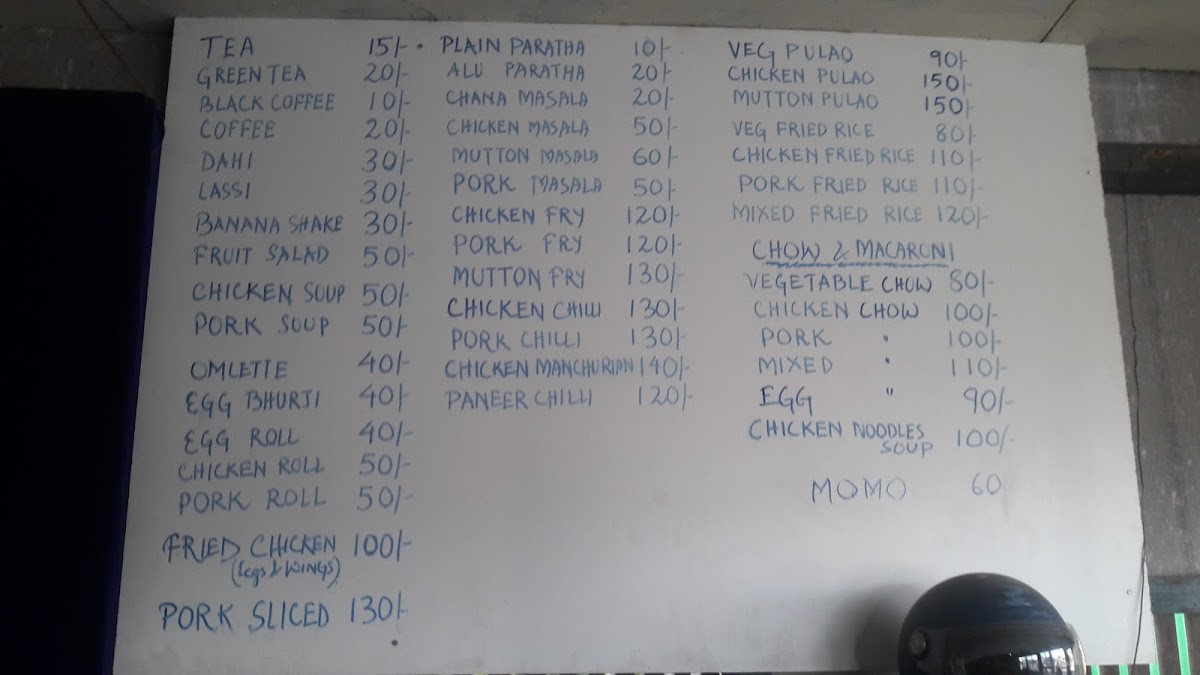 TEA 15/-
GREEN TEA 20/-
BLACK COFFEE 10/-
COFFEE 20/-
DAHI 30/-
LASSI 30/-
BANANA SHAKE 30/-
FRUIT SALAD 50/-
CHICKEN SOUP 50/-
PORK SOUP 50/-
OMLETTE 40/-
EGG BHURJI 40/-
EGG ROLL 40/-
CHICKEN ROLL 50/-
PORK ROLL 50/-
FRIED CHICKEN 100/-
(Legs & WINGS)
PORK SLICED 130/-
PLAIN PARATHA 10/-
ALU PARATHA 20/-
CHANA MASALA 20/-
CHICKEN MASALA 50/-
MUTTON MASALA 60/-
PORK MASALA 50/-
CHICKEN FRY 120/-
PORK FRY 120/-
MUTTON FRY 130/-
CHICKEN CHILLI 130/-
PORK CHILLI 130/-
CHICKEN MANCHURIAN 140/-
PANEER CHILLI 120/-
VEG PULAO 90/-
CHICKEN PULAO 150/-
MUTTON PULAO 150/-
VEG FRIED RICE 80/-
CHICKEN FRIED RICE 110/-
PORK FRIED RICE 110/-
MIXED FRIED RICE 120/-
CHOW & MACARONI
VEGETABLE CHOW 80/-
CHICKEN CHOW 100/-
PORK " 100/-
MIXED " 110/-
EGG " 90/-
CHICKEN NOODLES 100/-
SOUP
MOMO 60